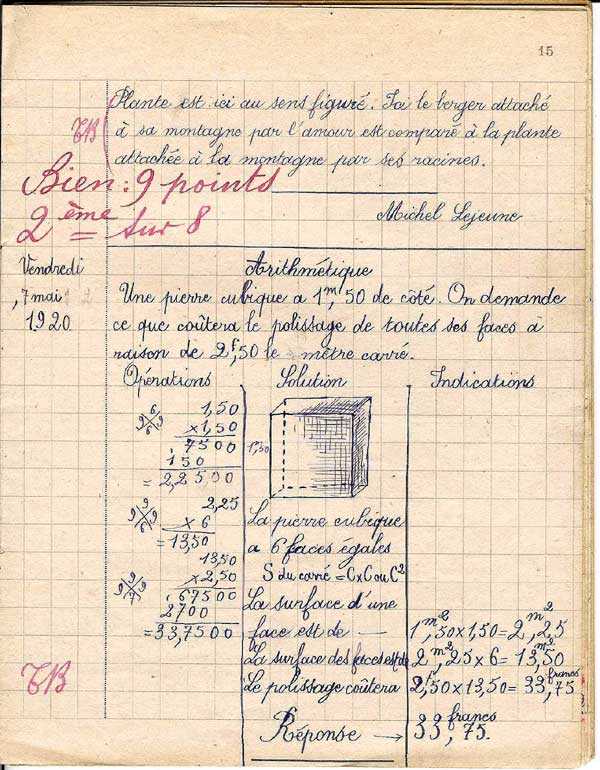 15
Plante est ici au sens figuré. Ici le berger attaché
à sa montagne par l'amour est comparé à la plante
attachée à la montagne par ses racines.
TB
Bien : 9 points
2ème sur 8
Michel Lejeune
Vendredi
7 mai
1920
Arithmétique
Une pierre cubique a 1m,50 de côté. On demande
ce que coûtera le polissage de toutes ses faces à
raison de 2f,50 le mètre carré.
Opérations
1,50
×1,50
7500
150
= 2,2500
2,25
×6
=13,50
13,50
×2,50
67500
2700
=33,7500
Solution
1m,50
La pierre cubique
a 6 faces égales
S du carré = C×C ou C²
La surface d'une
face est de —
La surface des faces est de
Le polissage coûtera
Réponse →
Indications
1,50×1,50= 2m²,25
2m²,25×6= 13m²,50
2f,50×13,50= 33francs,75
33francs,75.
TB